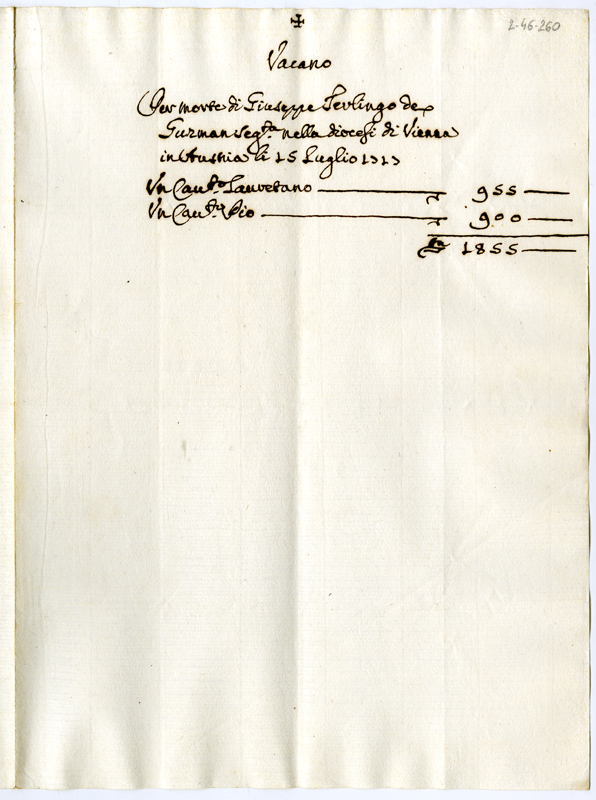 2-46-260
✠
Vacano
Per morte di Giuseppe Perlingo de
Guzman seg.ta nella diocesi di Vienna
in Austria li 15 Luglio 1713
Un Cau.to Lauretano 955
Un Cau.to Pio 900
1855